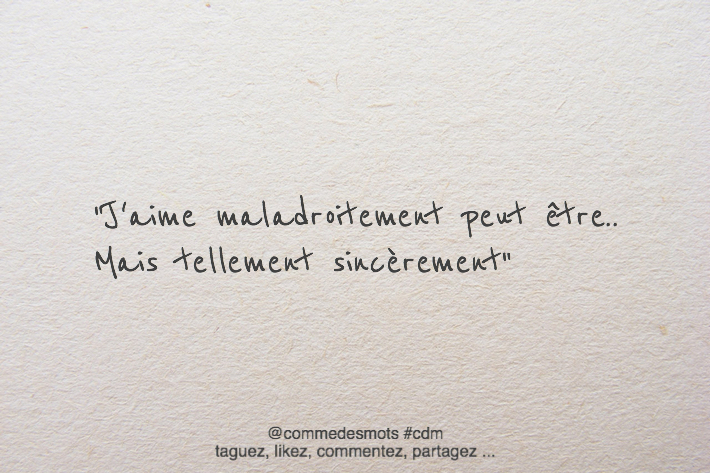 "J'aime maladroitement peut être..
Mais tellement sincèrement"
@commedesmots #cdm
taguez, likez, commentez, partagez ...